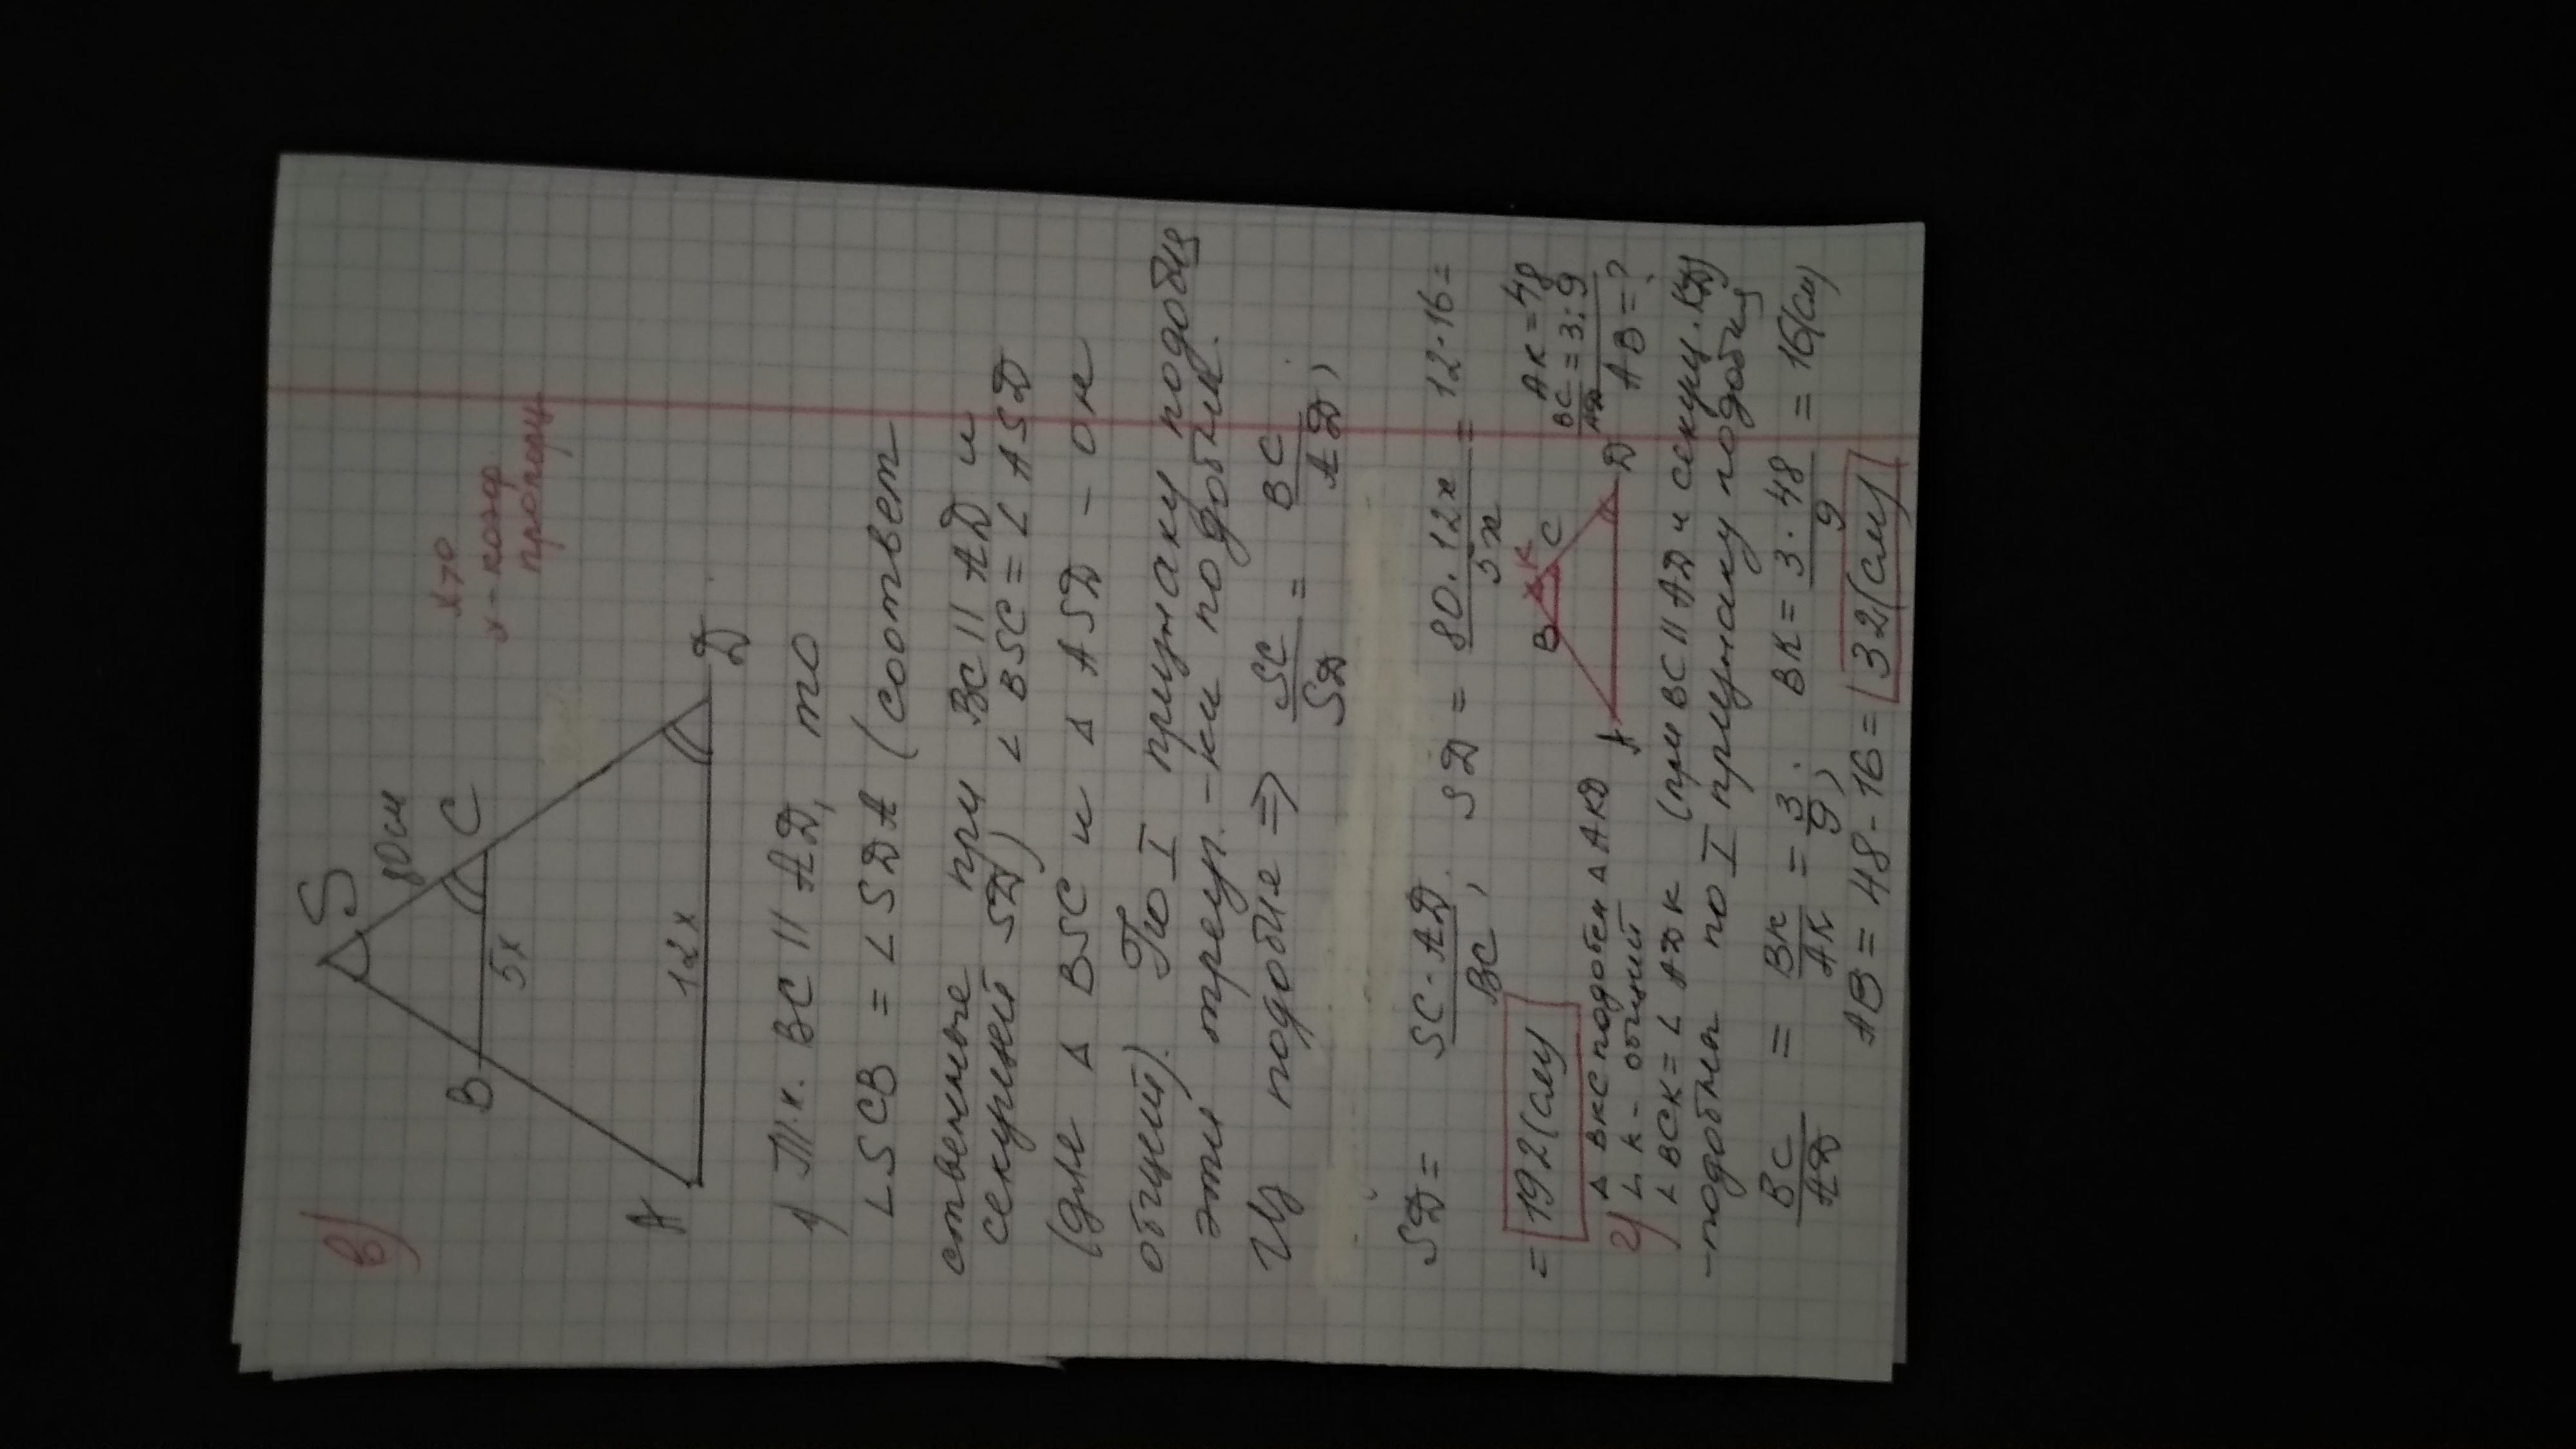 в)
S
80см
x>0
x - коэф
пропорц
B
C
5x
12x
A
D
1) Т.к. BC || AD, то
∠SCB = ∠SDA (соответ
ственные при BC || AD и
секущей SD) ∠BSC = ∠ASD
(для Δ BSC и Δ ASD - он
общий). По I признаку подобия
эти треуг.-ки подобны.
Из подобие ⇒ SC/SD = BC/AD,
SD = SC·AD/BC, SD = 80·12x/5x = 12·16 =
= 192(см)
B
K
C
A
D
AK = 48
BC/AD = 3:9
AB = ?
2) Δ BKC подобен Δ AKD
∠ K - общий
∠ BCK = ∠ ADK (при BC || AD и секущ. KD)
-подобны по I признаку подобия
BC/AD = BK/AK = 3/9, BK = 3·48/9 = 16(см)
AB = 48-16 = 32(см)